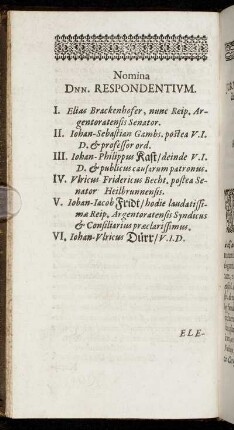 Nomina
DNN. RESPONDENTIVM.
I. Elias Brackenhofer, nunc Reip. Ar-
gentoratensis Senator.
II. Iohan-Sebastian Gambs. postea V.I.
D. & professor ord.
III. Iohan-Philippus Kast/deinde V.I.
D. & publicus causarum patronus.
IV. Vlricus Fridericus Becht. postea Se-
nator Heilbrunnensis.
V. Iohan-Iacob Fridt/hodie laudatissi-
mæ Reip. Argentoratensis Syndicus
& Consiliarius præclarissimus.
VI. Iohan-Vlricus Dürr/V.I.D.
ELE-